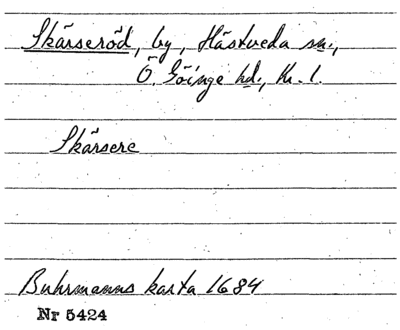 Skärseröd, by, Hästveda sn.,
Ö. Göinge hd., Kr. l.
Skärsere
Buhrmanns karta 1684
Nr 5424